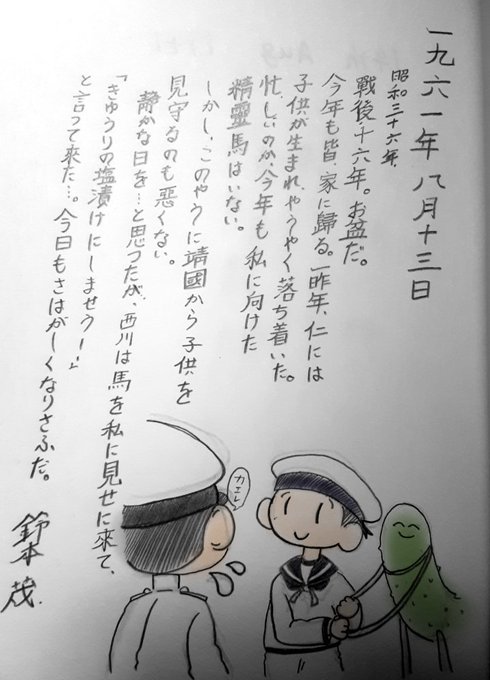 一九六一年 八月十三日
昭和三十六年
戰後十六年。お盆だ。
今年も皆、家に歸る。一昨年、仁には
子供が生まれ、やうやく落ち着いた。
忙しいのか、今年も私に向けた
精靈馬はいない。
しかし、このやうに靖國から子供を
見守るのも悪くない。
静かな日を…と思つたが、西川は馬を私に見せに來て、
「きゅうりの塩漬けにしませうー!」
と言って來た…。今日もさはがしくなりさふだ。
鈴木茂
カエレ